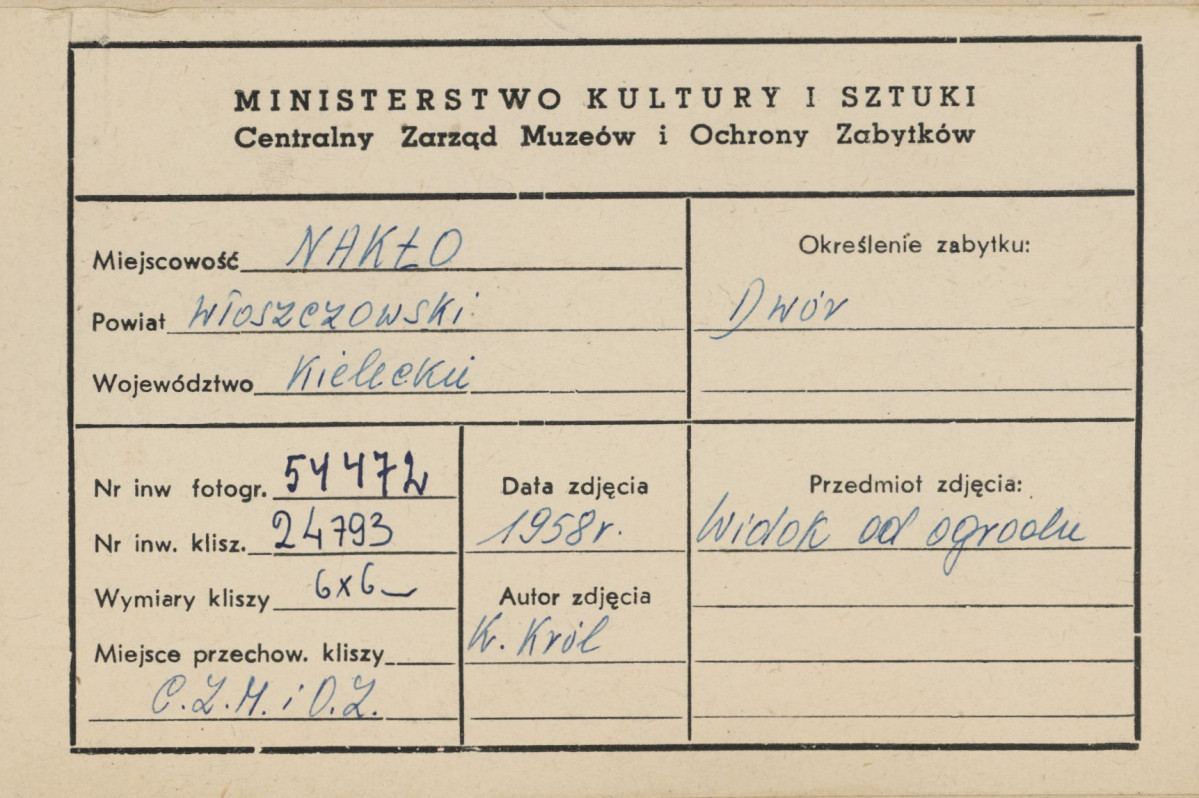 MINISTERSTWO KULTURY I SZTUKI
Centralny Zarząd Muzeów i Ochrony Zabytków
Miejscowość NAKŁO
Powiat Włoszczowski
Województwo Kieleckie
Określenie zabytku:
Dwór
Nr inw fotogr. 54472
Nr inw. klisz. 24793
Wymiary kliszy 6x6
Miejsce przechow. kliszy
C.Z.M. i O.Z.
Data zdjęcia
1958r.
Autor zdjęcia
K. Król
Przedmiot zdjęcia:
Widok od ogrodu